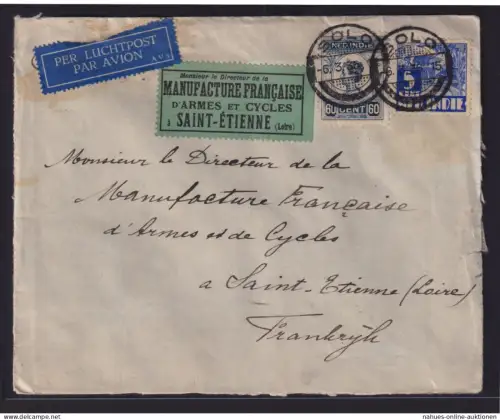 PER LUCHTPOST
PAR AVION
Monsieur le Directeur de la
MANUFACTURE FRANÇAISE
D'ARMES ET CYCLES
à SAINT-ÉTIENNE (Loire)
NED. INDIE
60 CENT 60
SOLO
SOLO
5
INDIE
Monsieur le Directeur de la
Manufacture Française
d'Armes et de Cycles
a Saint-Etienne (Loire)
Frankrijk
nahues-online-auktionen